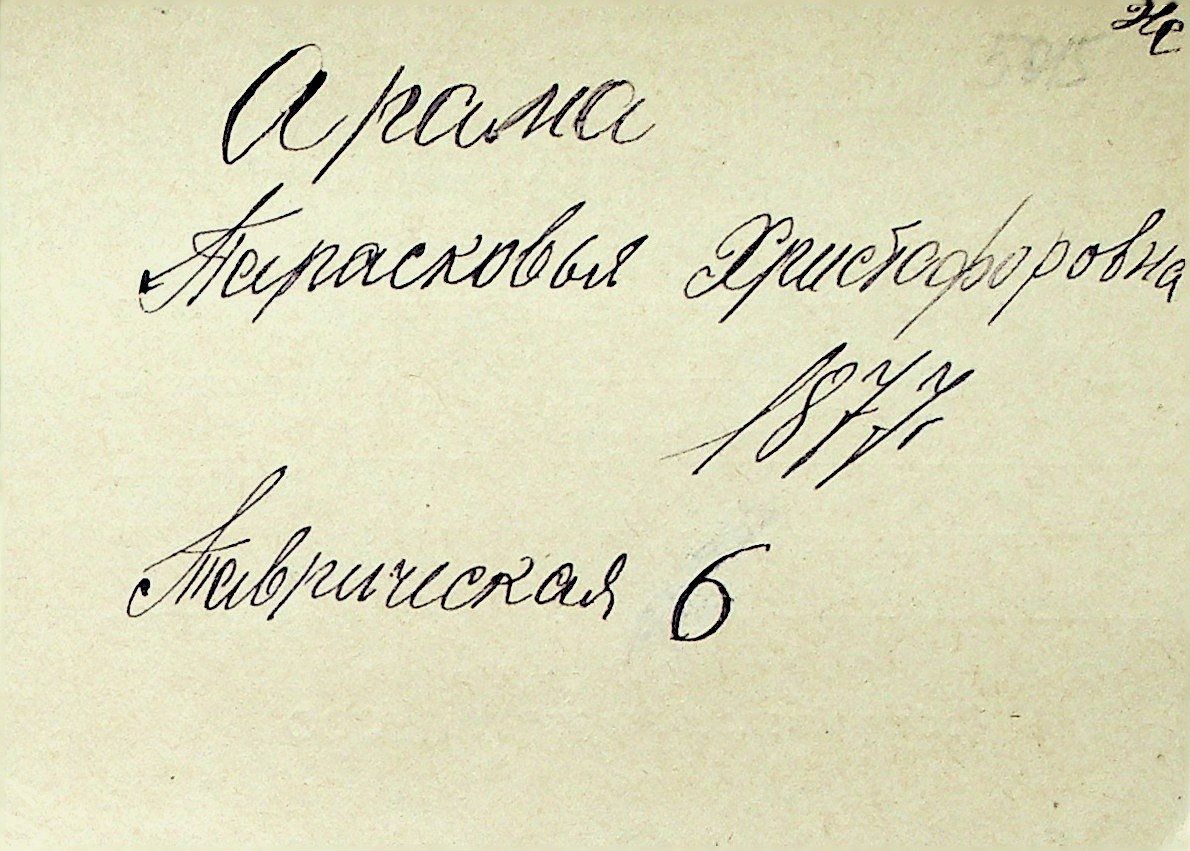 Арана
Парасковья Христофоровна
1877г
Таврическая 6